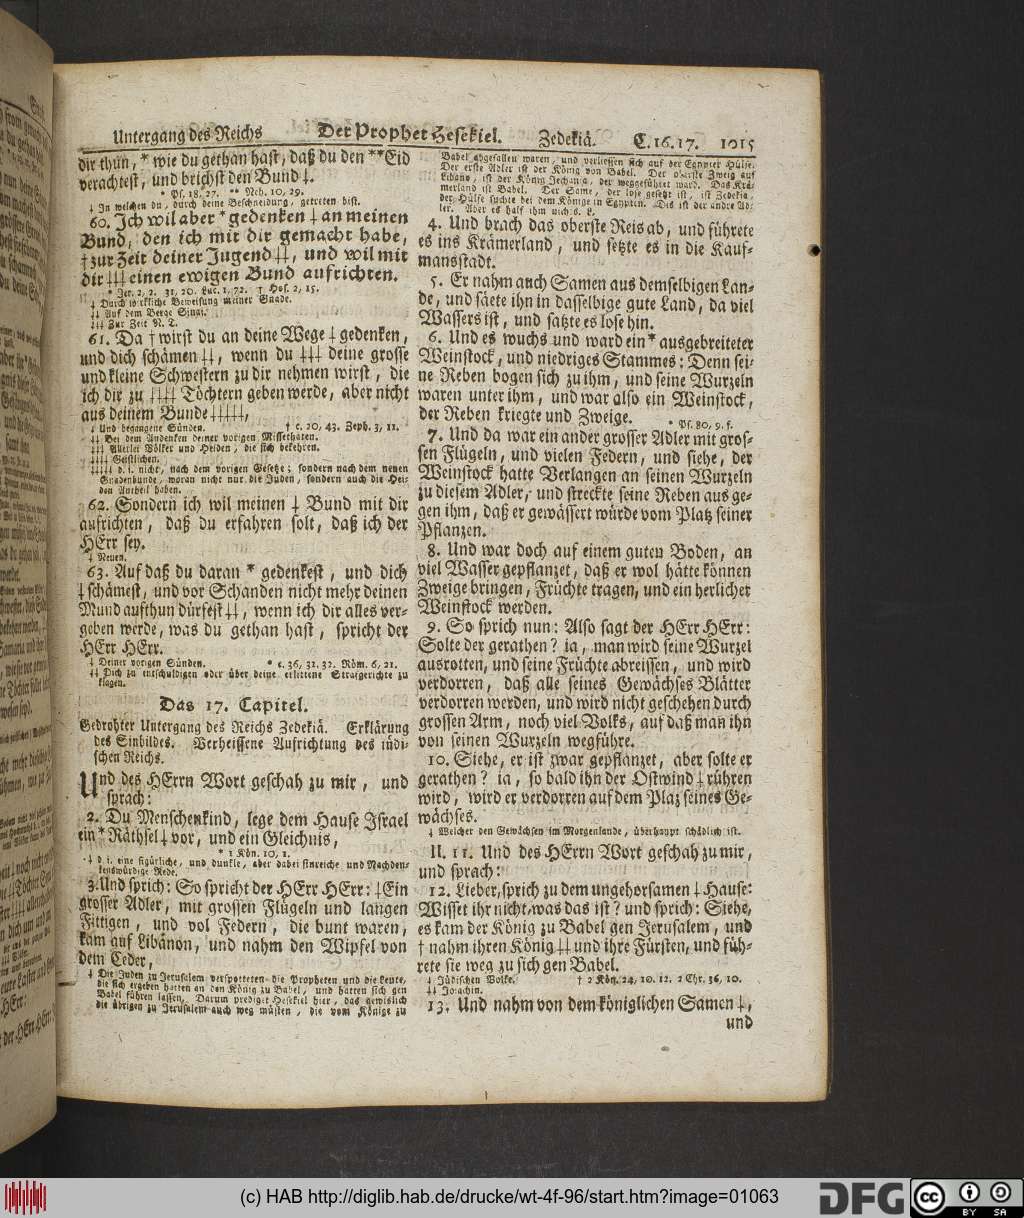 Untergang des Reichs Der Prophet Hesekiel. Zedekiä. C. 16. 17. 1015
dir thun, * wie du gethan hast, daß du den **Eid
verachtest, und brichst den Bund ‡.
* Ps. 18, 27. ** Neh. 10, 29.
‡ In welchen du, durch deine Beschneidung, getreten bist.
60. Ich wil aber * gedenken ‡ an meinen
Bund, den ich mit dir gemacht habe,
† zur Zeit deiner Jugend ‡‡, und wil mit
dir ‡‡‡ einen ewigen Bund aufrichten.
* Jer. 2, 2. 31, 20. Luc. 1, 72. † Hos. 2, 15.
‡ Durch wirkliche Beweisung meiner Gnade.
‡‡ Auf dem Berge Sinai.
‡‡‡ Zur Zeit N. T.
61. Da † wirst du an deine Wege ‡ gedenken,
und dich schämen ‡‡, wenn du ‡‡‡ deine grosse
und kleine Schwestern zu dir nehmen wirst, die
ich dir zu ‡‡‡‡ Töchtern geben werde, aber nicht
aus deinem Bunde ‡‡‡‡‡,
‡ Und begangene Sünden. † c. 20, 43. Zeph. 3, 11.
‡‡ Bei dem Andenken deiner vorigen Missethaten.
‡‡‡ Allerlei Völker und Heiden, die sich bekehren.
‡‡‡‡ Geistlichen.
‡‡‡‡‡ d. i. nicht, nach dem vorigen Gesetze; sondern nach dem neuen
Gnadenbunde, woran nicht nur die Juden, sondern auch die Hei-
den Antheil haben.
62. Sondern ich wil meinen ‡ Bund mit dir
aufrichten, daß du erfahren solt, daß ich der
HErr sey.
‡ Neuen.
63. Auf daß du daran * gedenkest, und dich
‡ schämest, und vor Schanden nicht mehr deinen
Mund aufthun dürfest ‡‡, wenn ich dir alles ver-
geben werde, was du gethan hast, spricht der
HErr HErr.
‡ Deiner vorigen Sünden. * c. 36, 31. 32. Röm. 6, 21.
‡‡ Dich zu entschuldigen oder über deine erlittene Strafgerichte zu
klagen.
Das 17. Capitel.
Gedrohter Untergang des Reichs Zedekiä. Erklärung
des Sinbildes. Verheissene Aufrichtung des jüdi-
schen Reichs.
Und des HErrn Wort geschah zu mir, und
sprach:
2. Du Menschenkind, lege dem Hause Israel
ein * Räthsel ‡ vor, und ein Gleichnis,
* 1 Kön. 10, 1.
‡ d. i. eine figürliche, und dunkle, aber dabei sinreiche und Nachden-
kenswürdige Rede.
3. Und sprich: So spricht der HErr HErr: ‡ Ein
grosser Adler, mit grossen Flügeln und langen
Fittigen, und vol Federn, die bunt waren,
kam auf Libanon, und nahm den Wipfel von
dem Ceder,
‡ Die Juden zu Jerusalem verspotteten die Propheten und die Leute,
die sich ergeben hatten an den König zu Babel, und hatten sich gen
Babel führen lassen. Darum prediget Hesekiel hier, das gewislich
die übrigen zu Jerusalem auch weg müsten, die vom Könige zu
Babel abgefallen waren, und verliessen sich auf der Egypter Hülfe.
Der erste Adler ist der König von Babel. Der oberste Zweig auf
Libano, ist der König Jechania, der weggeführet ward. Das Krä-
merland ist Babel. Der Same, der lose gesetzt ist, ist Zedekia,
der Hülfe suchte bei dem Könige in Egypten. Dis ist der andre Ad-
ler. Aber es half ihm nichts. L.
4. Und brach das oberste Reis ab, und führete
es ins Krämerland, und setzte es in die Kauf-
mansstadt.
5. Er nahm auch Samen aus demselbigen Lan-
de, und säete ihn in dasselbige gute Land, da viel
Wassers ist, und satzte es lose hin.
6. Und es wuchs und ward ein * ausgebreiteter
Weinstock, und niedriges Stammes: Denn sei-
ne Reben bogen sich zu ihm, und seine Wurzeln
waren unter ihm, und war also ein Weinstock,
der Reben kriegte und Zweige. * Ps. 80, 9. f.
7. Und da war ein ander grosser Adler mit gros-
sen Flügeln, und vielen Federn, und siehe, der
Weinstock hatte Verlangen an seinen Wurzeln
zu diesem Adler, und streckte seine Reben aus ge-
gen ihm, daß er gewässert würde vom Platz seiner
Pflanzen.
8. Und war doch auf einem guten Boden, an
viel Wasser gepflanzet, daß er wol hätte können
Zweige bringen, Früchte tragen, und ein herlicher
Weinstock werden.
9. So sprich nun: Also sagt der HErr HErr:
Solte der gerathen? ja, man wird seine Wurzel
ausrotten, und seine Früchte abreissen, und wird
verdorren, daß alle seines Gewächses Blätter
verdorren werden, und wird nicht geschehen durch
grossen Arm, noch viel Volks, auf daß man ihn
von seinen Wurzeln wegführe.
10. Siehe, er ist zwar gepflanzet, aber solte er
gerathen? ja, so bald ihn der Ostwind ‡ rühren
wird, wird er verdorren auf dem Plaz seines Ge-
wächses.
‡ Welcher den Gewächsen im Morgenlande, überhaupt schädlich ist.
II. 11. Und des HErrn Wort geschah zu mir,
und sprach:
12. Lieber, sprich zu dem ungehorsamen ‡ Hause:
Wisset ihr nicht, was das ist? und sprich: Siehe,
es kam der König zu Babel gen Jerusalem, und
† nahm ihren König ‡‡ und ihre Fürsten, und füh-
rete sie weg zu sich gen Babel.
‡ Jüdischen Volke. † 2 Kön. 24, 10. 12. 2 Chr. 36, 10.
‡‡ Jojachin.
13. Und nahm von dem königlichen Samen ‡,
und
(c) HAB http://diglib.hab.de/drucke/wt-4f-96/start.htm?image=01063
DFG
cc BY SA